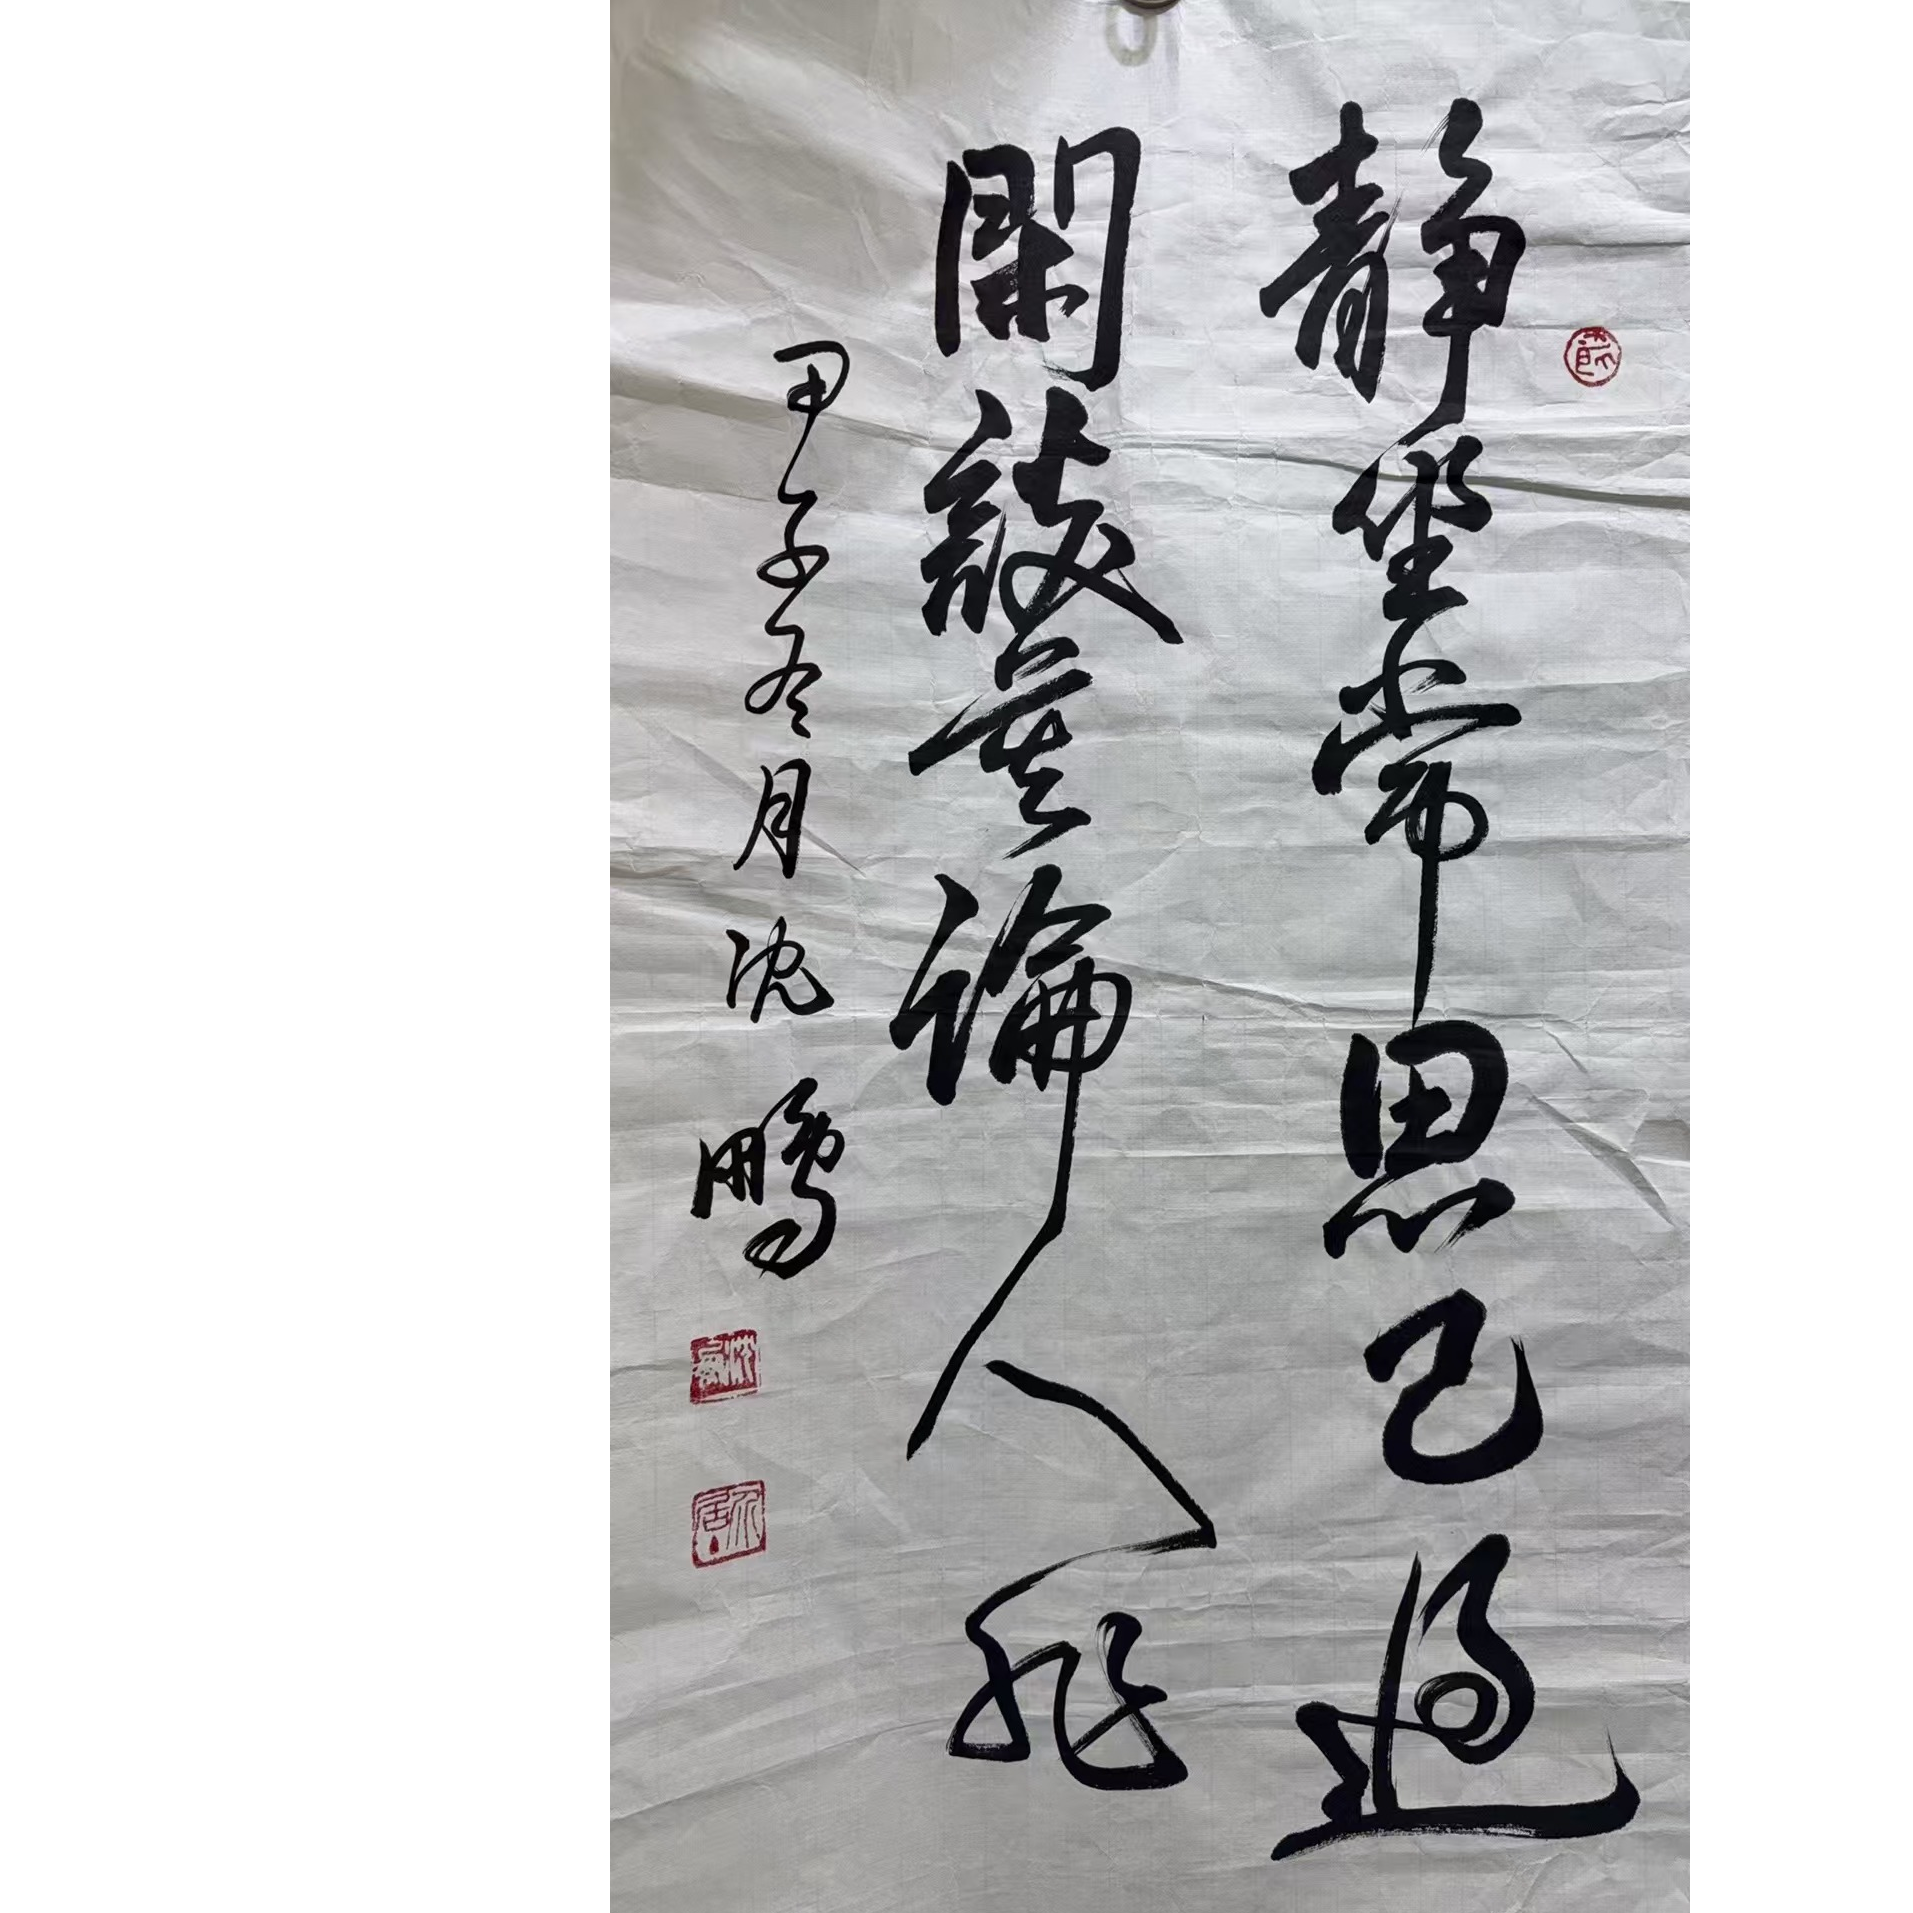 静坐常思己過
閑談莫論人非
甲子冬月沈鹏